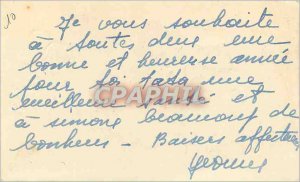 10
Je vous souhaite
à toutes deux une
bonne et heureuse année
pour toi tata une
meilleure santé et
à simone beaucoup de
bonheur - Baisers affectueux
CPARHTI